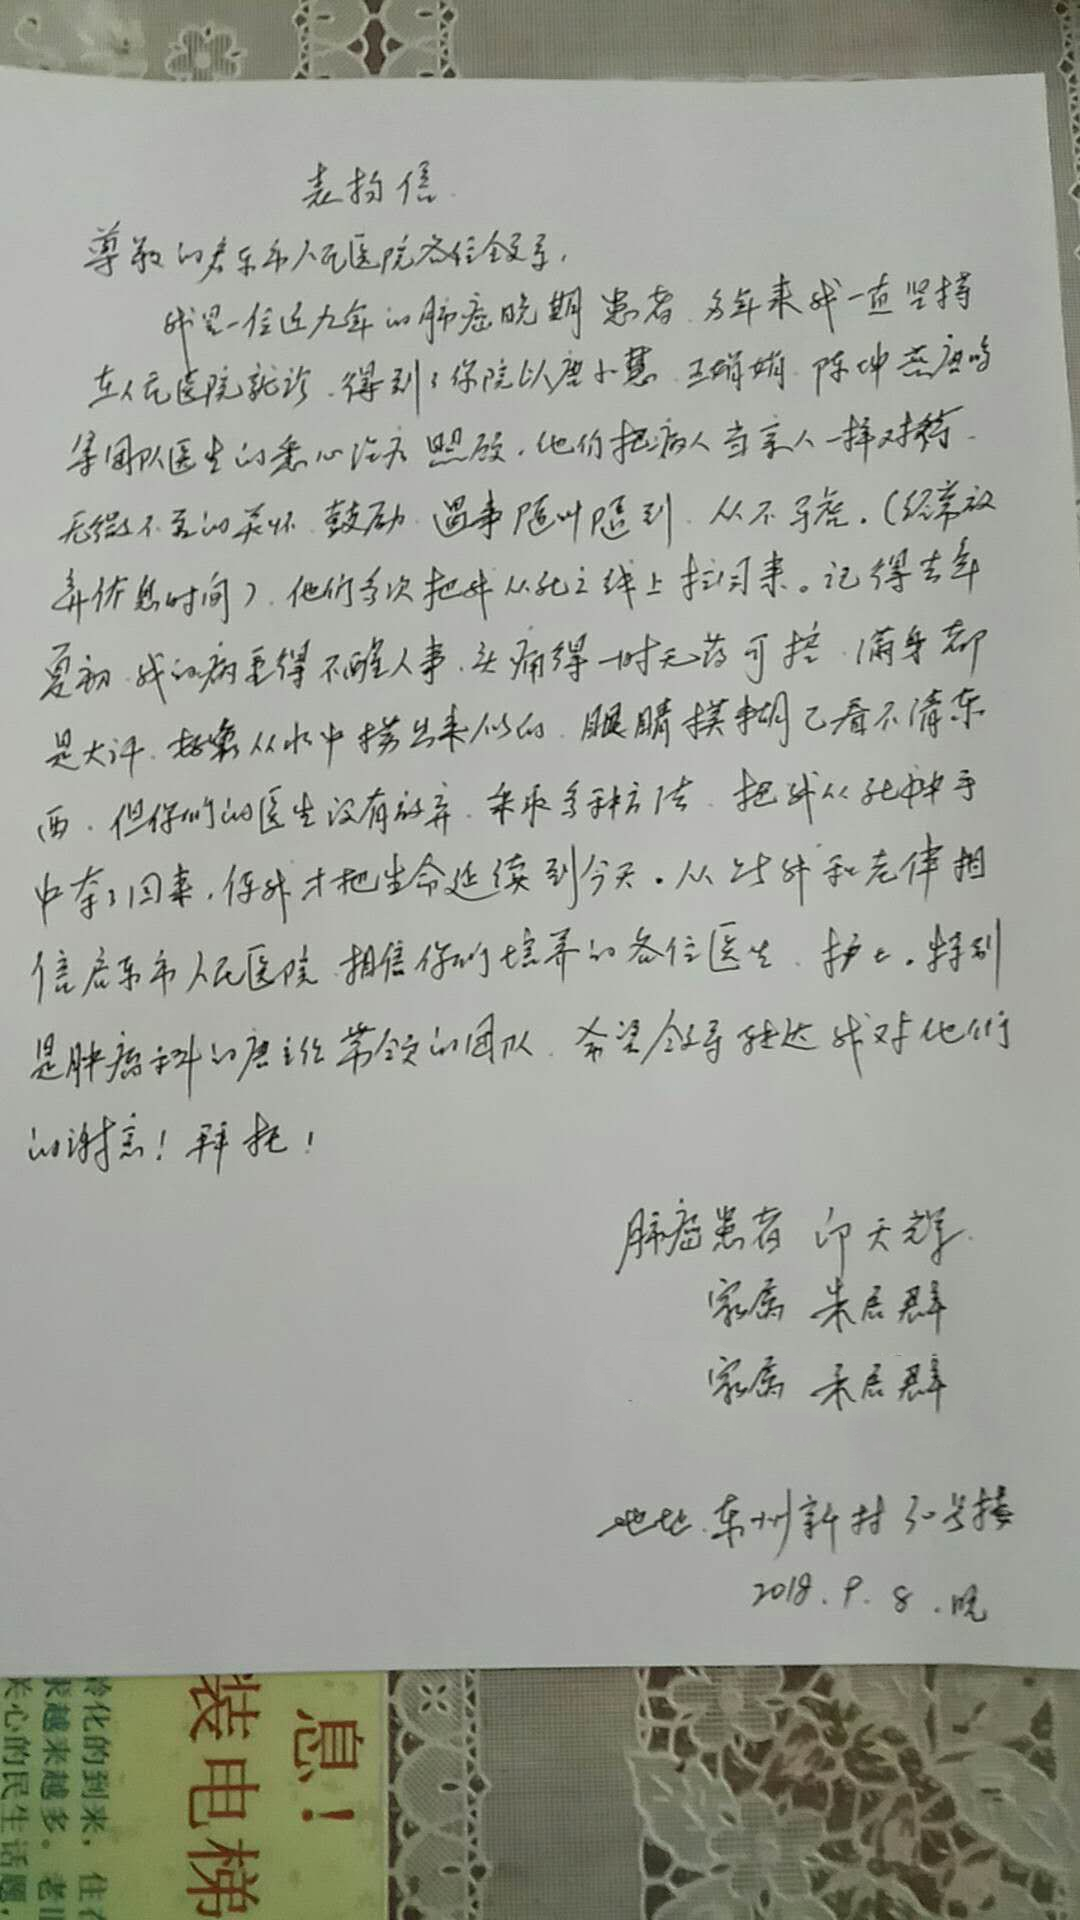 表扬信
尊敬的启东市人民医院各位领导,
我是一位近九年的肺癌晚期患者、多年来我一直坚持
在人民医院就诊、得到了你院以唐小慧、王娟娟、陈坤燕唐
等团队医生的悉心治疗照顾,他们把病人当亲人一样对待、
无微不至的关怀、鼓励、遇事随叫随到、从不。(经常放
弃休息时间),他们多次把我从死亡线上拉回来。记得去年
夏初、我的病重得不醒人事、头痛得一时无药可控、满身都
是大汗、好象从水中捞出来似的、眼睛模糊已看不清东
西、但你们的医生没有放弃、采取多种方法、把我从死神手
中夺了回来,使我才把生命延续到今天。从此我和老伴相
信启东市人民医院、相信你们培养的各位医生、护士。特别
是肿瘤科的唐主任带领的团队、希望领导转达我对他们
的谢意!拜托!
肺癌患者 邱天辉
家属 朱启群
家属 朱启群
地址、东州新村30号楼
2018.9.8.晚
息!
装电梯
龄化的到来,住在
来越多。老
关心的民生话题,